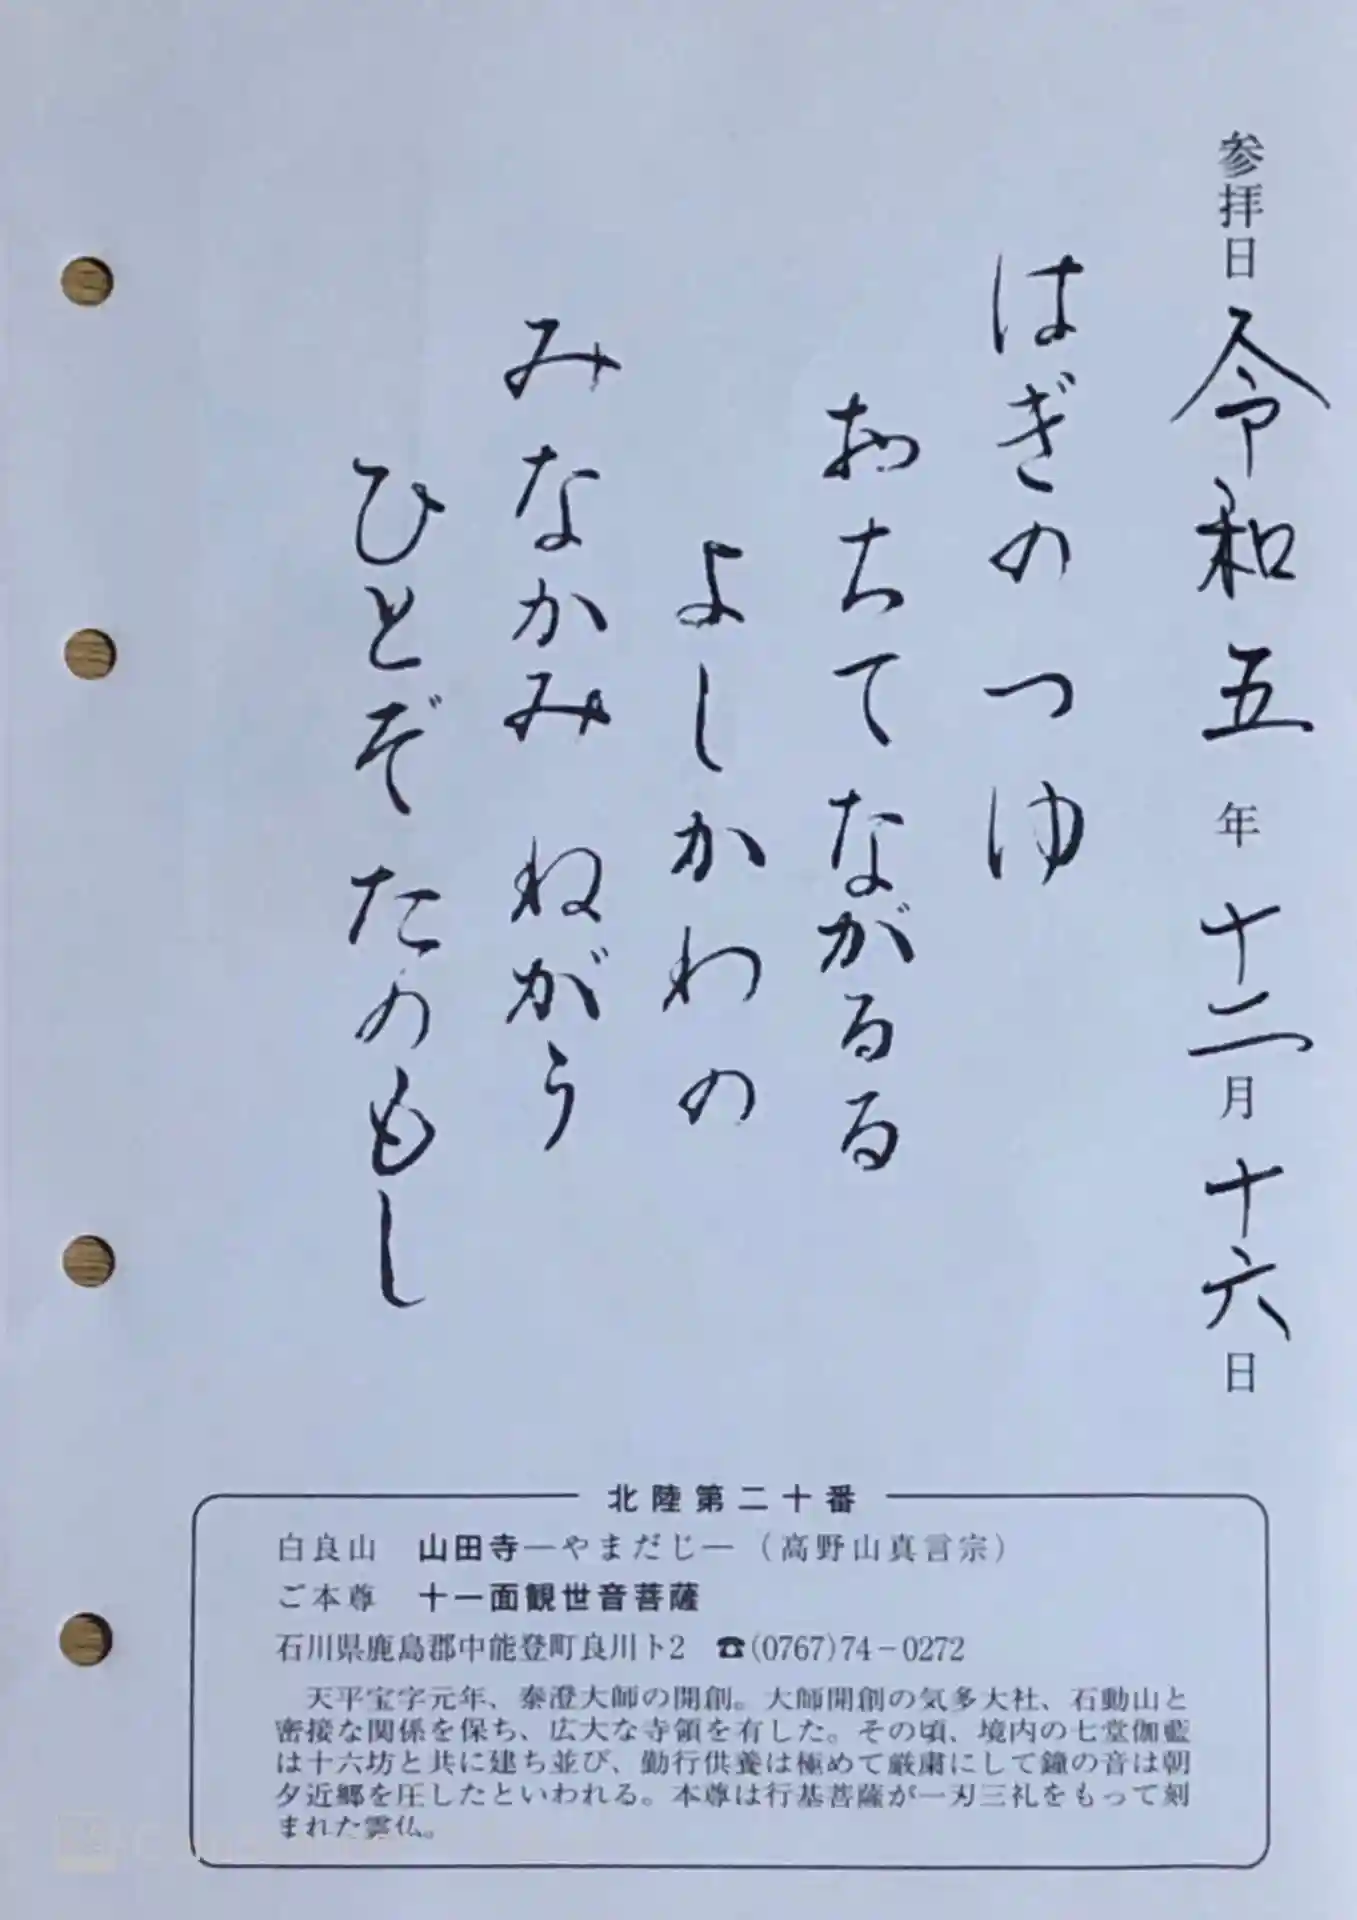 参拝日 令和五年十二月十六日
はぎのつゆ
おちてながるる
よしかわの
みなかみ ねがう
ひとぞ たのもし
北陸第二十番
白良山 山田寺―やまだじ―（高野山真言宗）
ご本尊 十一面観世音菩薩
石川県鹿島郡中能登町良川ト2 ☎(0767)74－0272
天平宝字元年、泰澄大師の開創。大師開創の気多大社、石動山と
密接な関係を保ち、広大な寺領を有した。その頃、境内の七堂伽藍
は十六坊と共に建ち並び、勤行供養は極めて厳粛にして鐘の音は朝
夕近郷を圧したといわれる。本尊は行基菩薩が一刃三礼をもって刻
まれた霊仏。